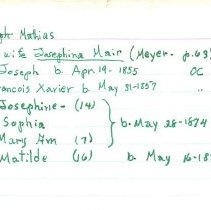 ph Mathias
wife Josephina Mair (Meyer - p.63)
Joseph b. Apr. 19 - 1855 OC
ancois Xavier b. May 31-1857 "
Josephine - (14)
Sophia } b. May 28-1874
Mary Ann (7)
Matilde (16) b. May 16-18